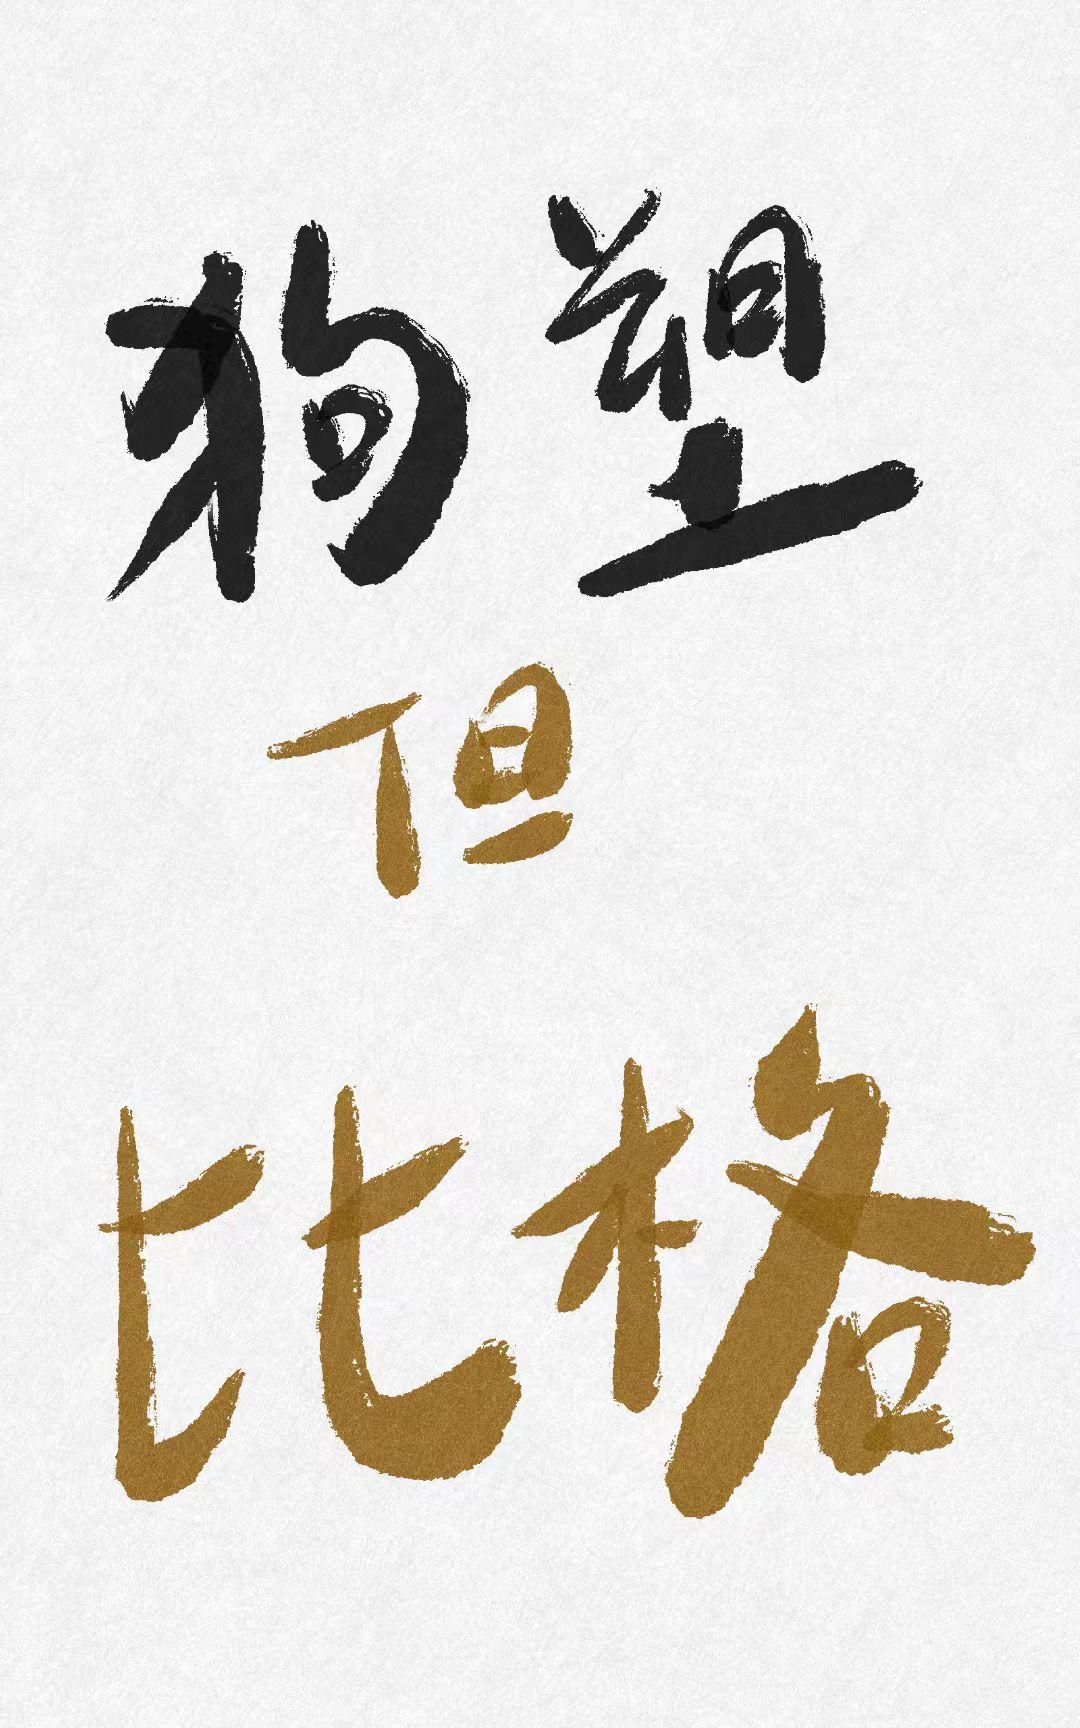 狗塑
但
比格